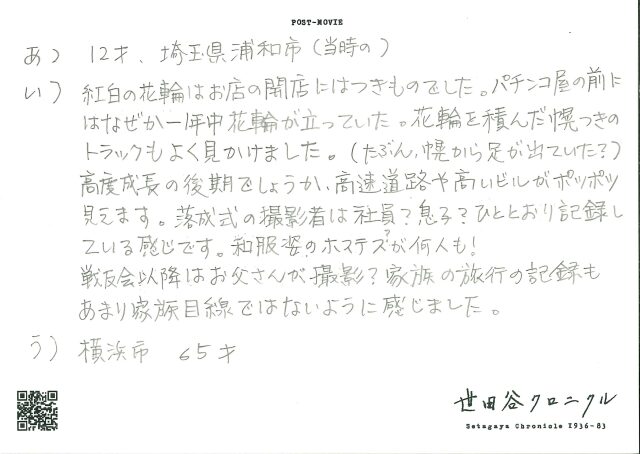 POST-MOVIE
あ） 12才、埼玉県浦和市（当時の）
い） 紅白の花輪はお店の開店にはつきものでした。パチンコ屋の前に
はなぜか一年中花輪が立っていた。花輪を積んだ幌つきの
トラックもよく見かけました。（たぶん、幌から足が出ていた？）
高度成長の後期でしょうか、高速道路や高いビルがポツポツ
見えます。落成式の撮影者は社員？息子？ひととおり記録し
ている感じです。和服姿のホステス？が何人も！
戦友会以降はお父さんが撮影？家族の旅行の記録も
あまり家族目線ではないように感じました。
う） 横浜市 65才
世田谷クロニクル
Setagaya Chronicle 1936-83